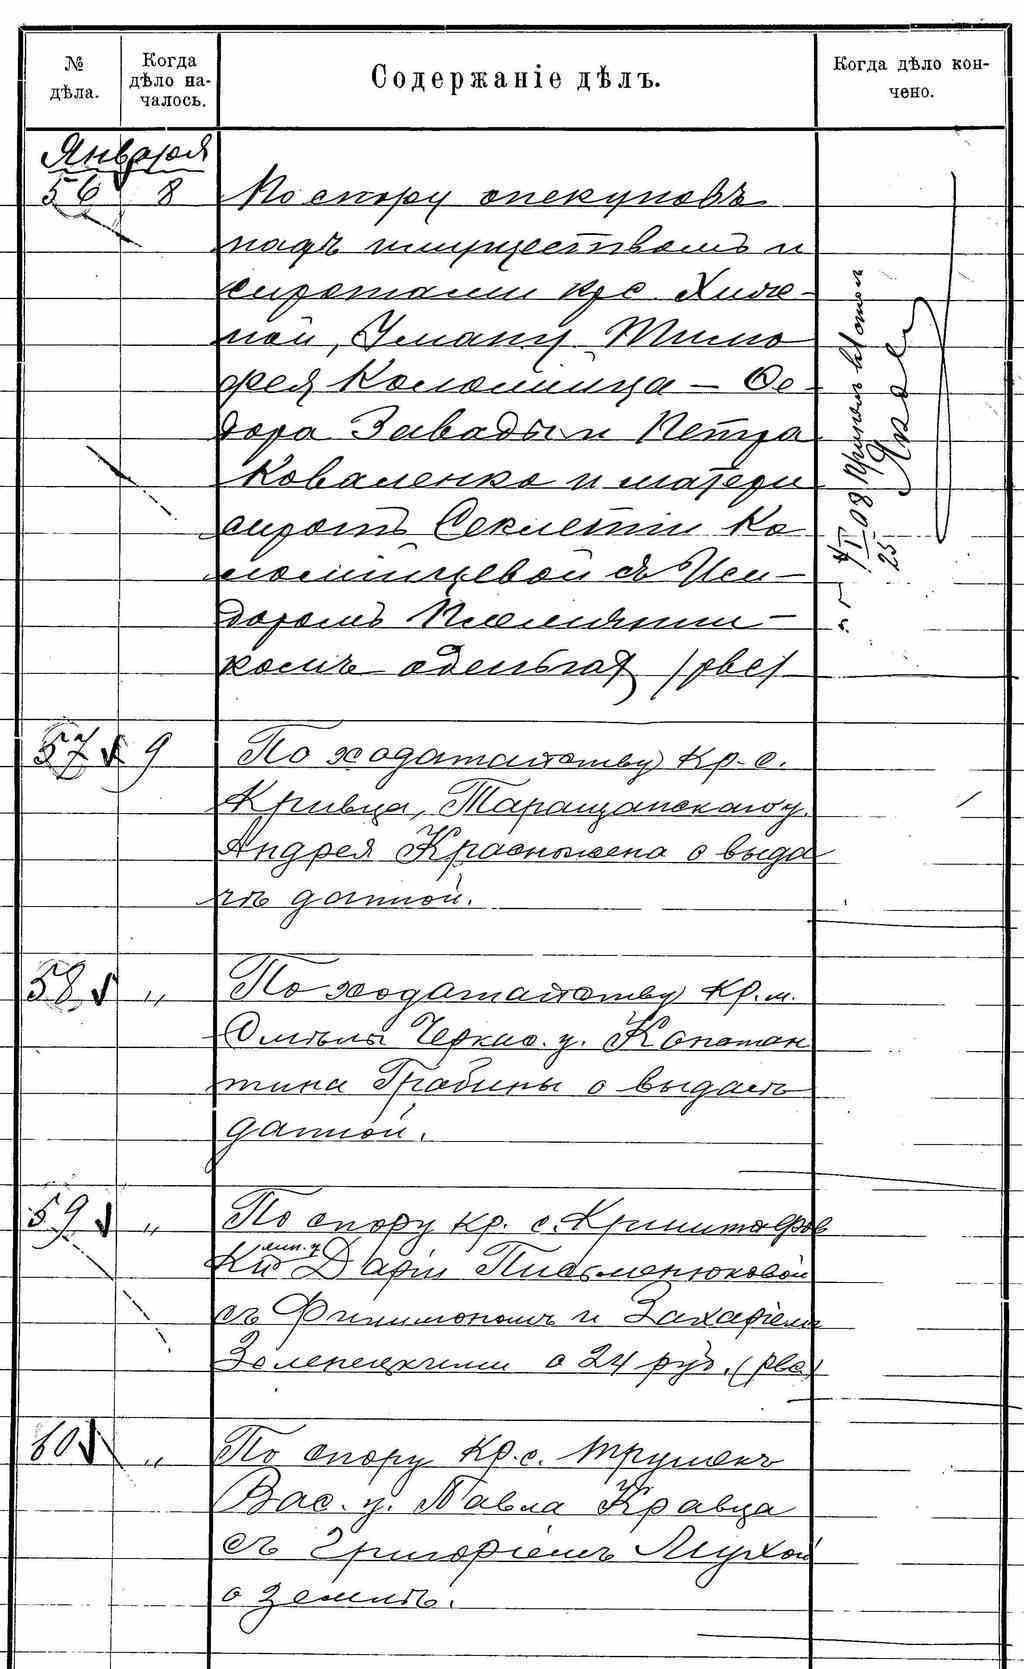 № дѣла.
Когда дѣло на-
чалось.
Содержаніе дѣлъ.
Когда дѣло кон-
чено.
Января
56 8 По спору опекуновъ
надъ имуществомъ и
сиротами крс. Хиже-
ной, У ману. Тимо
фея Коломійца — Ѳе-
дора Завады и Петра
Коваленко и матери
сиротъ Секлетіи Ко
ломійцевой съ Иси-
доромъ Племянни-
комъ о деньгах /рвс/
57 9 По ходатайству Кр. с.
Кривца, Таращанскаго у.
Андрея Красножена о выда
чѣ данной.
58 „ По ходатайству Кр. м.
Смѣлы Черкас. у. Констан
тина Грабины о выдачѣ
данной.
59 „ По спору кр. с. Криштофов
Ки лип. у. Даріи Письменюковой
съ Филимономъ и Захаріем
Зеленецкими о 24 руб. (рвс)
60 „ По спору Кр. с. Трушек
Вас. у. Павла Кравца
съ Григоріемъ Мухой
о землѣ.